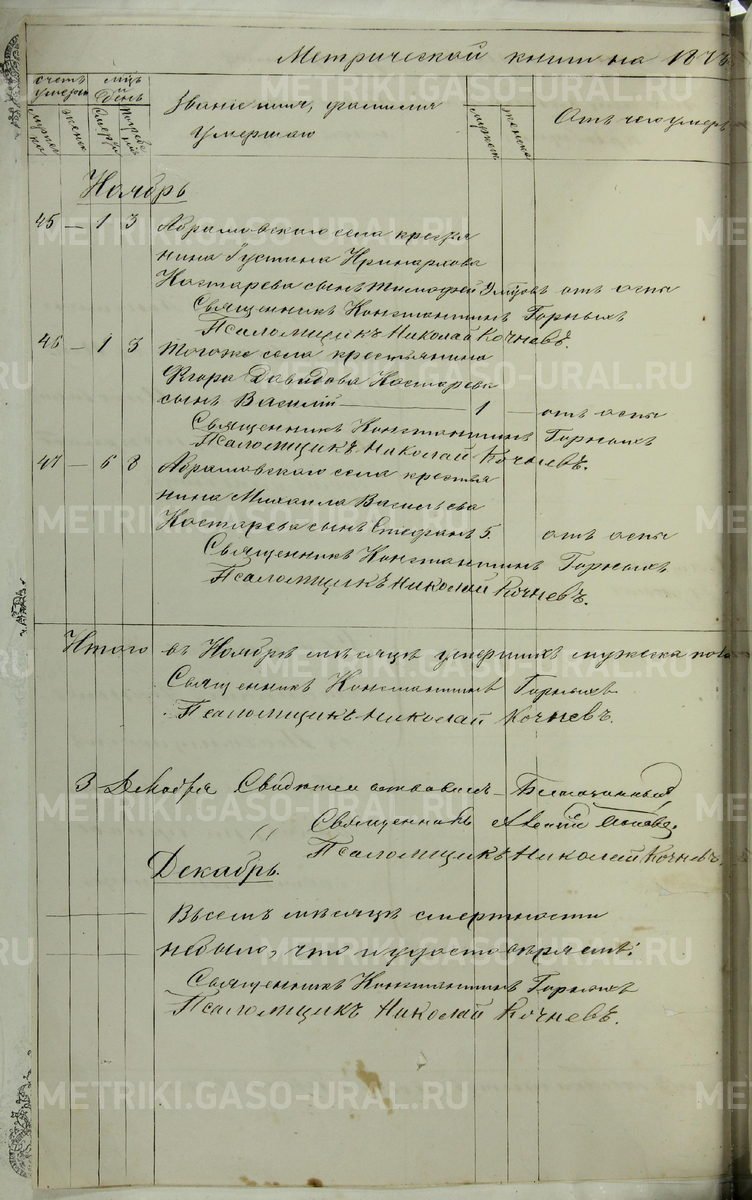 Метрической книги на 187
счетъ умершихъ
мѣц. и день
Званіе имя, фамилія умершаго
Отъ чего умеръ
мужеска
женска
смерти
погребенія
мужеска
женска
Ноябрь
45 — 1 3 Абрамовскаго села крестья
нина Густина Иринархова
Костарева сынъ Тимофей отъ оспы
Священникъ Константинъ Горныхъ
Псаломщикъ Николай Кочневъ.
46 — 1 3 Тогоже села крестьянина
Егора Давидова Костарева
сынъ Василій — 1 — отъ оспы
Священникъ Константинъ Горныхъ
Псаломщикъ Николай Кочневъ.
47 — 6 8 Абрамовскаго села крестья
нина Михаила Васильева
Костарева сынъ Стефанъ 5. отъ оспы
Священникъ Константинъ Горныхъ
Псаломщикъ Николай Кочневъ.
Итого въ Ноябрѣ мѣсяцѣ умершихъ мужеска пола
Священникъ Константинъ Горныхъ
Псаломщикъ Николай Кочневъ.
3 Декабря Свидѣтельствовалъ Благочинный
Священникъ
Псаломщикъ Николай Кочневъ.
Декабрь.
Въ семъ мѣсяцѣ смертности
небыло, что и удостовѣряемъ:
Священникъ Константинъ Горныхъ
Псаломщикъ Николай Кочневъ.
METRIKI.GASO-URAL.RU